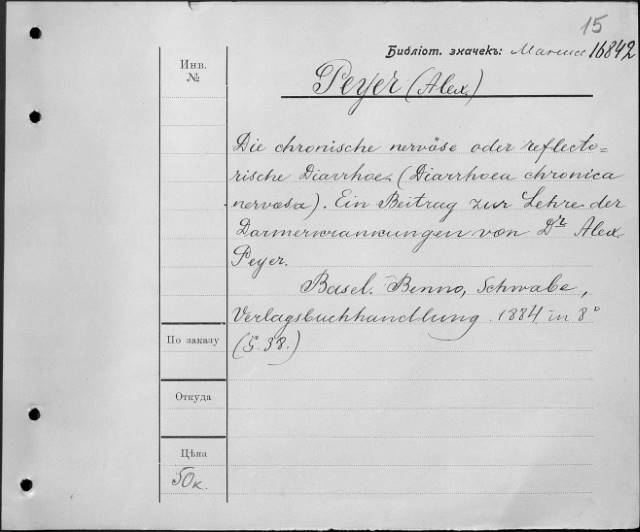 15
Библіот. значекъ: 16842
Инв.
№
Peyer (Alex)
Die chronische nervöse oder reflecto=
rische Diarrhoe. (Diarrhoea chronica
nervosa). Ein Beitrag zur Lehre der
Darmerkrankungen von Dr Alex.
Peyer.
Basel. Benno, Schwabe,
Verlagsbuchhandlung. 1884 in 8°
По заказу
(S. 38.)
Откуда
Цѣна
50к.